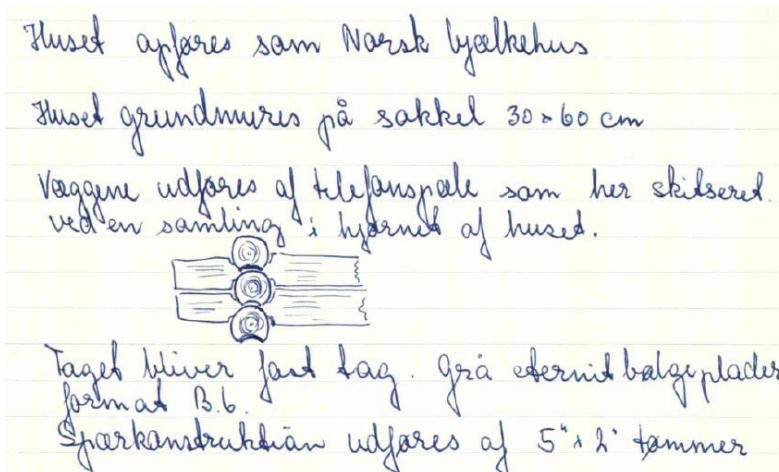 Huset opføres som Norsk bjælkehus
Huset grundmures på sokkel 30 x 60 cm
Væggene udføres af telefonpæle som her skitseret.
ved en samling i hjørnet af huset.
Taget bliver fast tag. Grå eternit bølgeplader
format B.6.
Spærkonstruktion udføres af 5" x 2" tømmer